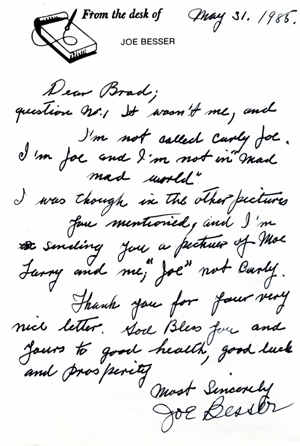 From the desk of
May 31. 1985.
JOE BESSER
Dear Brad;
question No. 1 It wasn't me, and
I'm not called Curly Joe.
I'm Joe and I'm not in "Mad
mad world"
I was though in the other pictures
you mentioned, and I'm
sending you a picture of Moe
Larry and me, "Joe" not Curly.
Thank you for your very
nice letter. God Bless you and
yours to good health, good luck
and prosperity
Most Sincerely
Joe Besser